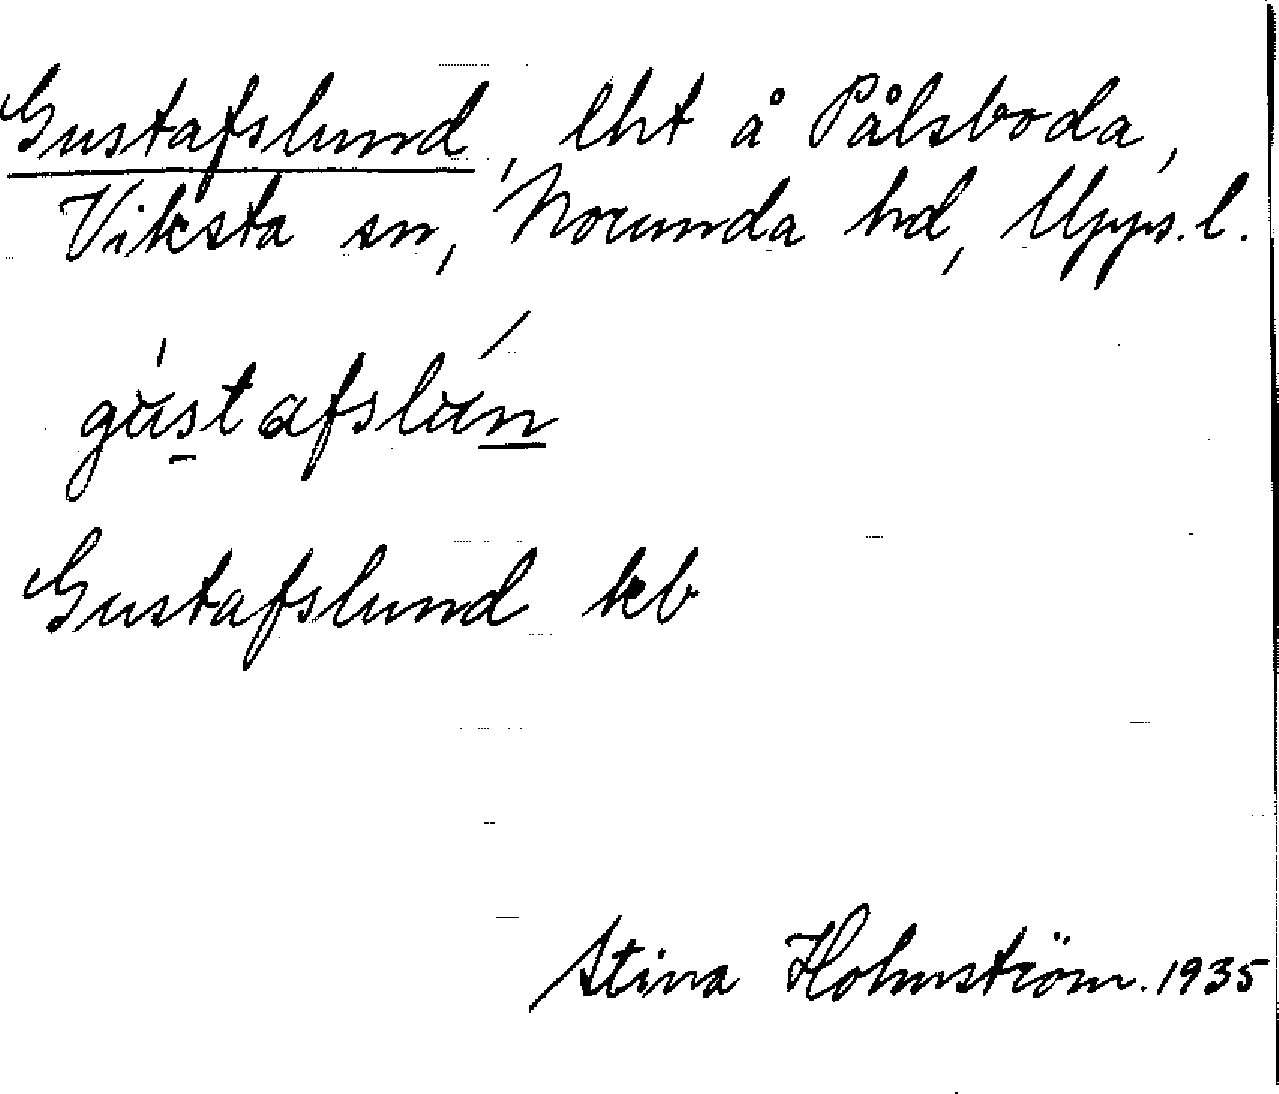 Gustafslund, lht å Pålsboda,
Viksta sn, Norunda hd, Upps.l.
gústafslún
Gustafslund kb
Stina Holmström. 1935